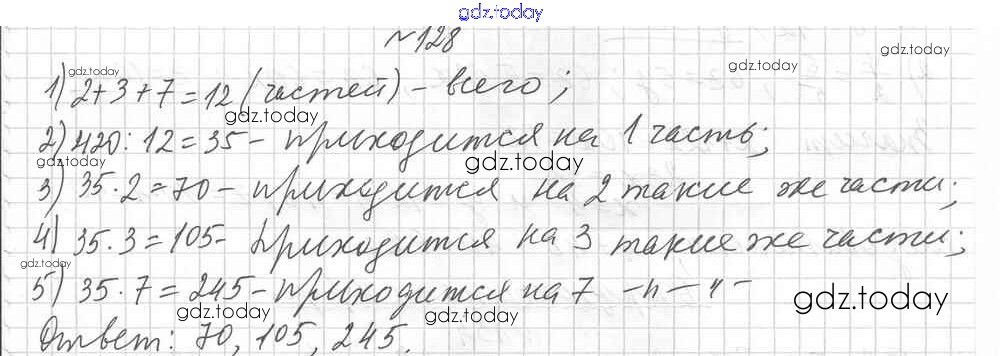 gdz.today
№128
gdz.today gdz.today gdz.today
1) 2+3+7=12 (частей) - всего;
gdz.today
2) 420:12=35 - приходится на 1 часть;
gdz.today
3) 35·2=70 - приходится на 2 такие же части;
4) 35·3=105 - приходится на 3 такие же части;
gdz.today
5) 35·7=245 - приходится на 7 -"-"-
gdz.today gdz.today gdz.today
Ответ: 70, 105, 245.